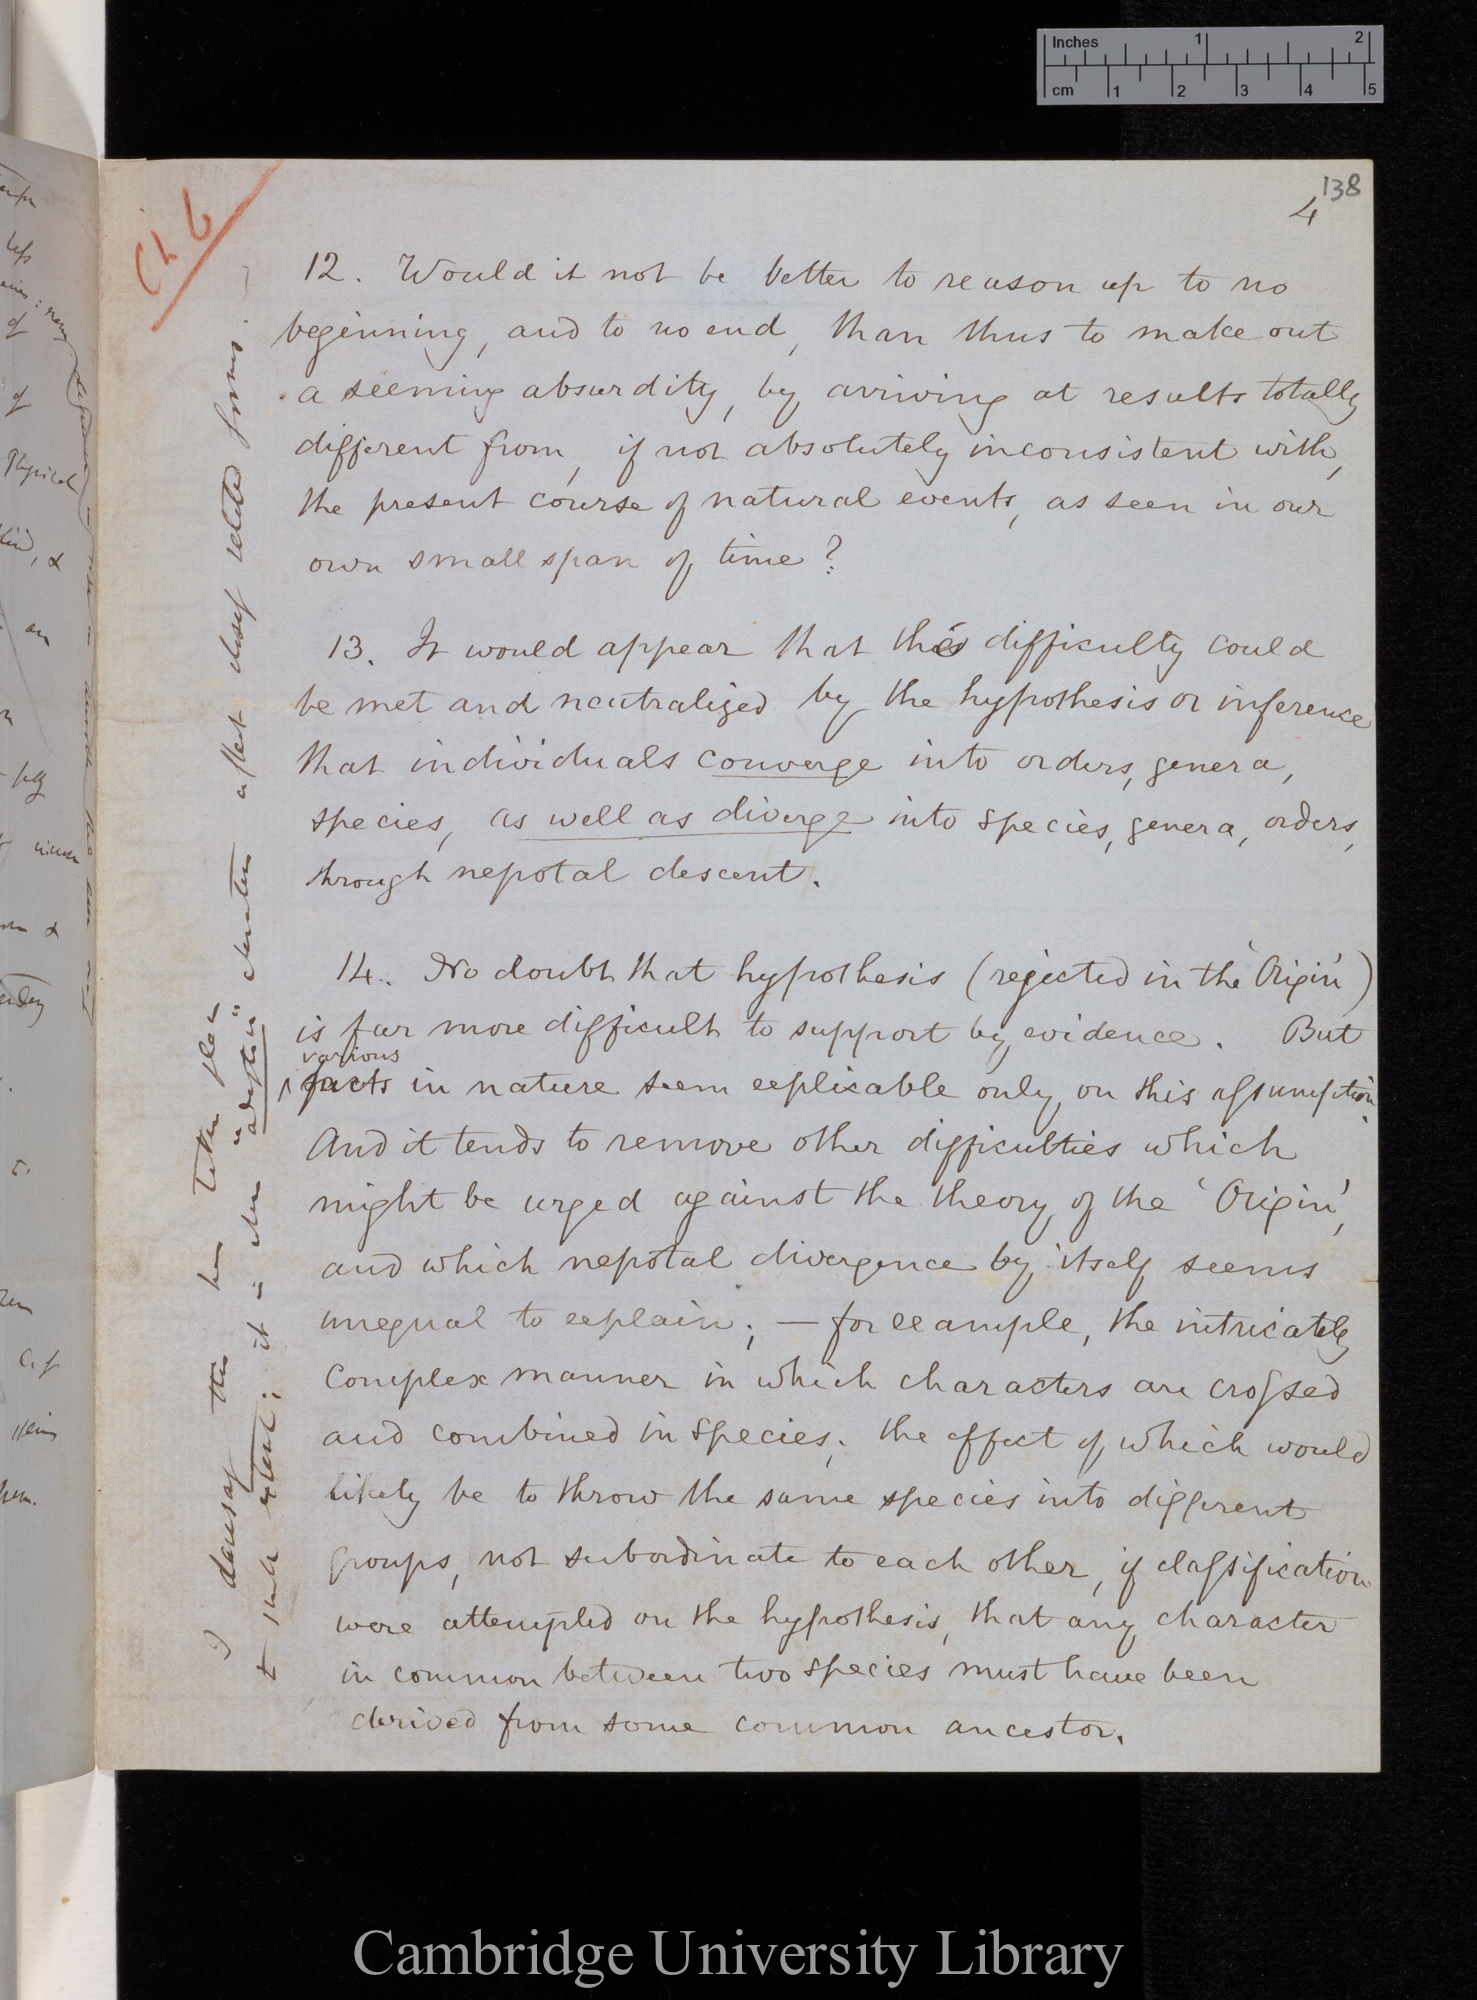 Inches 1 2
cm 1 2 3 4 5
138
4
Ch 6
12. Would it not be better to reason up to no
beginning, and to no end, than thus to make out
a seeming absurdity, by arriving at results totally
different from, if not absolutely inconsistent with,
the present course of natural events, as seen in our
own small span of time?
13. It would appear that this difficulty could
be met and neutralized by the hypothesis or inference
that individuals converge into orders, genera,
species, as well as diverge into species, genera, orders,
through nepotal descent.
14. No doubt that hypothesis (rejected in the 'Origin')
is far more difficult to support by evidence. But
various
facts in nature seem explicable only on this assumption.
And it tends to remove other difficulties which
might be urged against the theory of the 'Origin',
and which nepotal divergence by itself seems
unequal to explain; — for example, the intricately
complex manner in which characters are crossed
and combined in species; the effect of which would
likely be to throw the same species into different
groups, not subordinate to each other, if classification
were attempted on the hypothesis, that any character
in common between two species must have been
derived from some common ancestor.
I daresay this has taken place
to some extent; it is when "adaptive" characters affect closely related forms.
Cambridge University Library